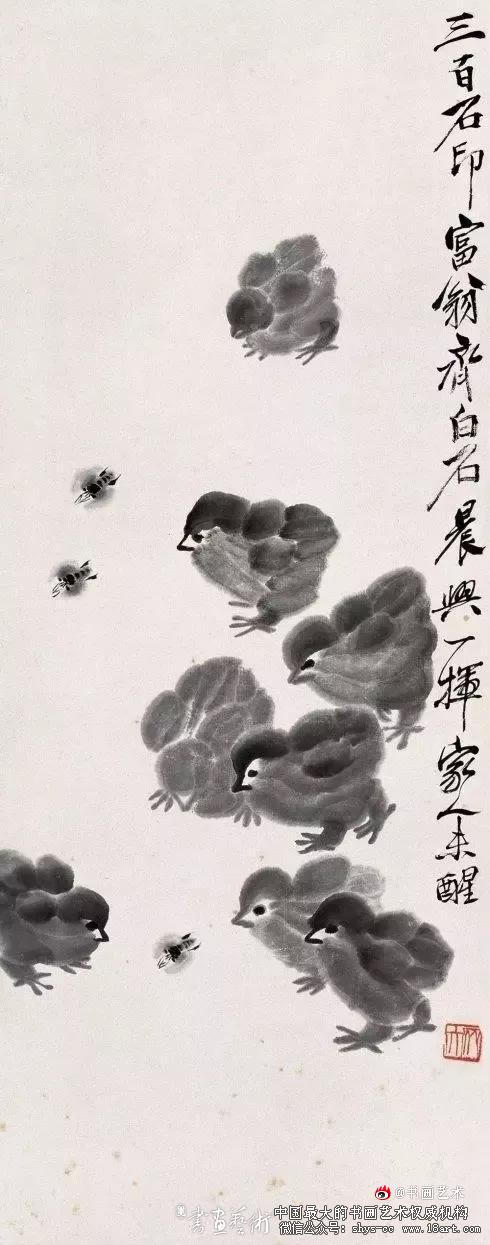 三百石印富翁齊白石晨興一揮家人未醒
@书画艺术
書画藝術
中国最大的书画艺术权威机构
微信公众号：shys-cc www.18art.com